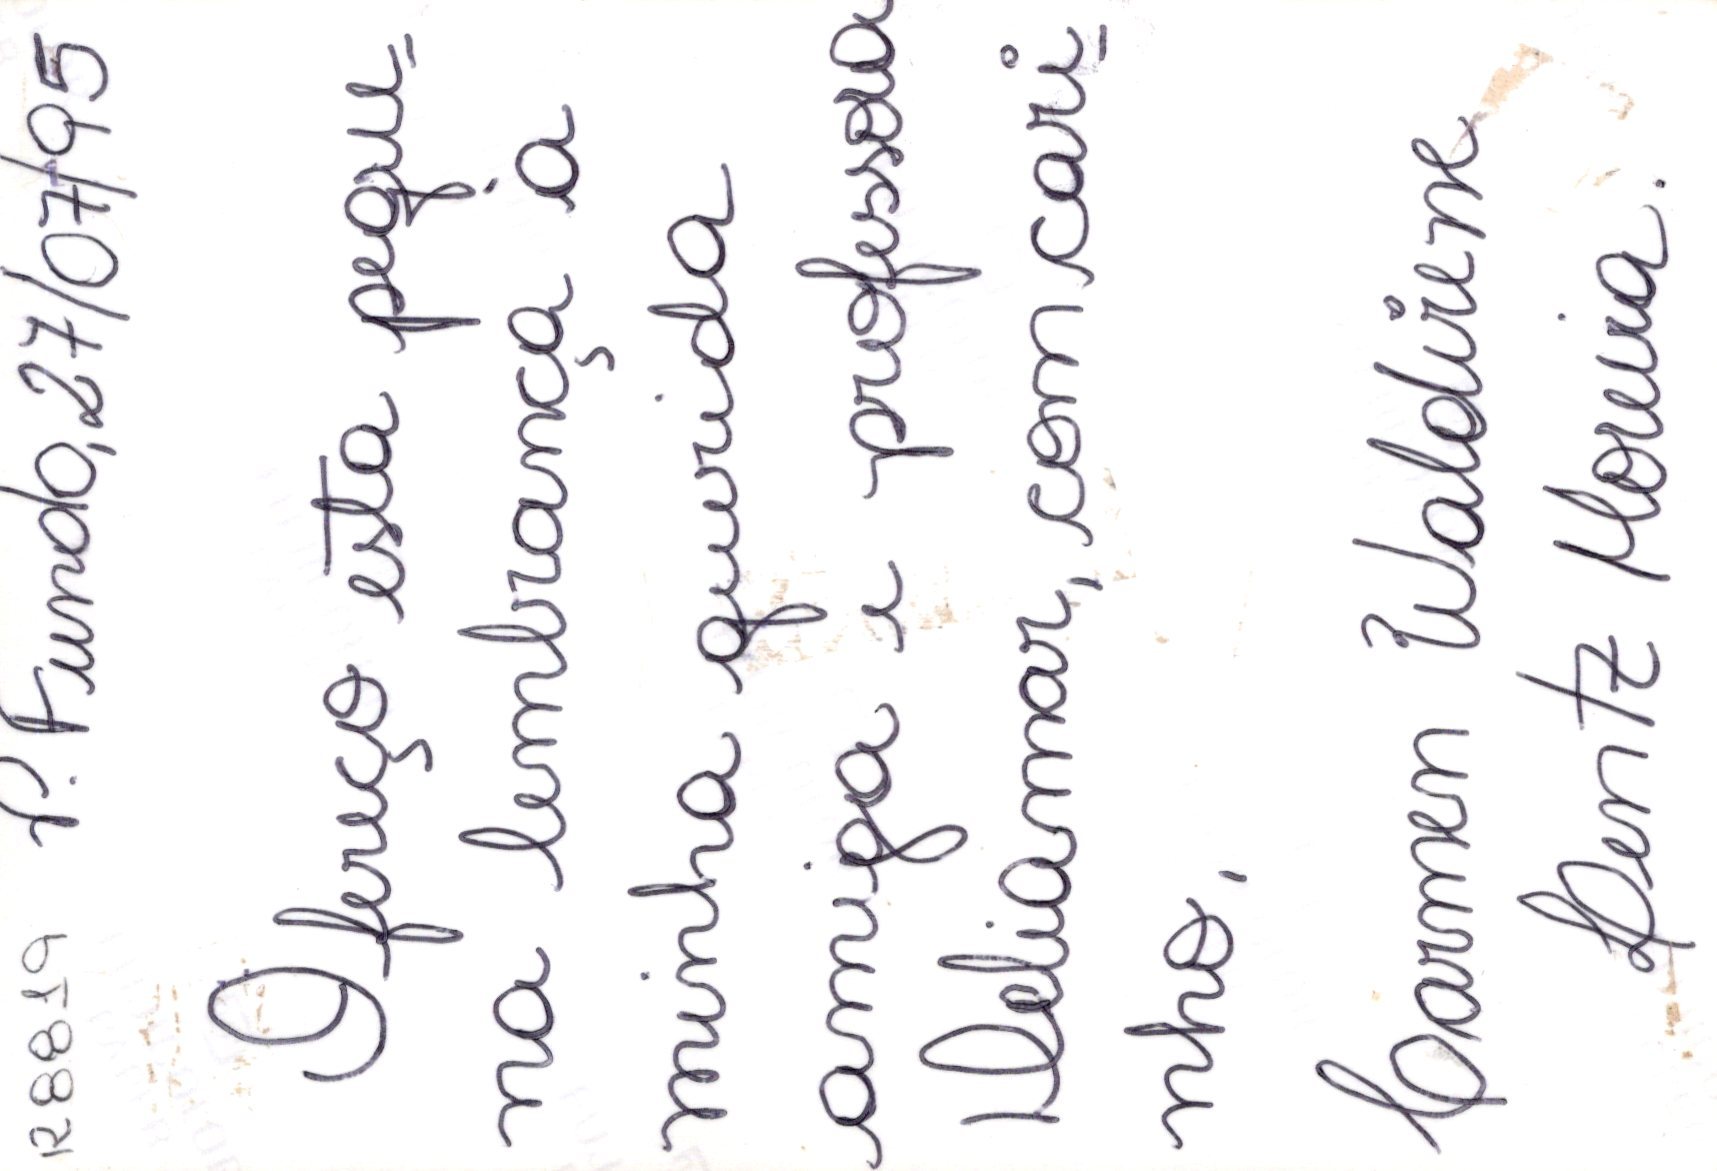 R8819 P. Fundo, 27/07/95
Ofereço esta peque=
na lembrança a
minha querida
amiga e professora
Heliamar, com cari-
nho,
Carmen Waldirene
Bentz Moreira.